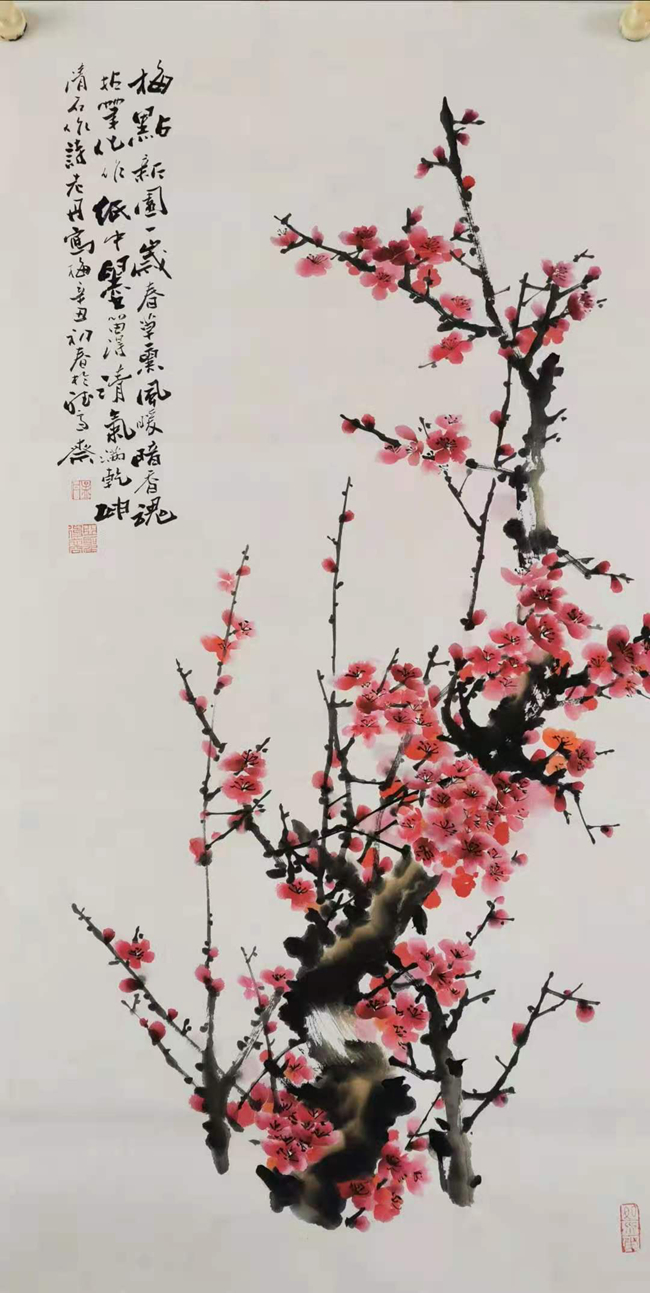 梅點新園一歲春草熏風暖暗香魂
拈筆化作紙中墨留得清氣滿乾坤
清石作詩老丹寫梅辛丑初春於齋